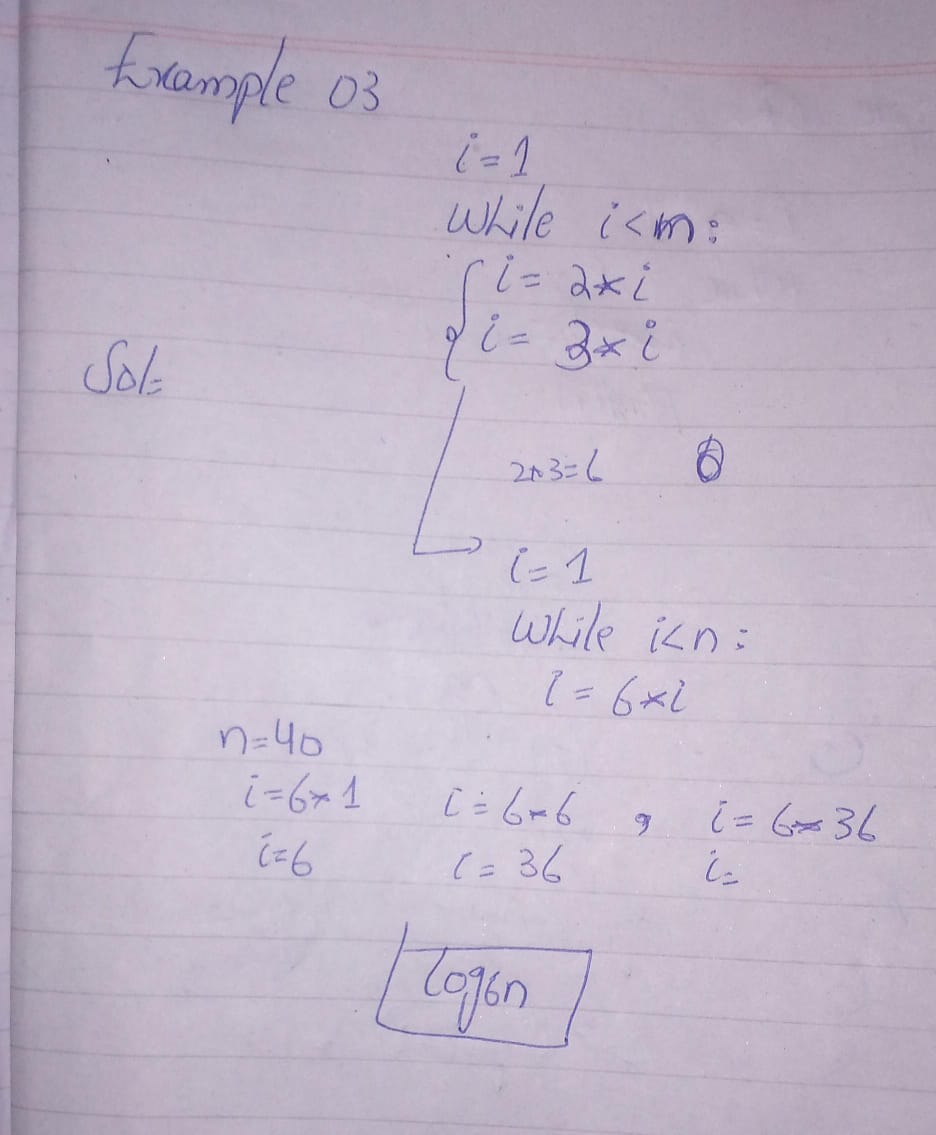 Example 03
i=1
While i<m:
i= 2*i
i= 3*i
Sol=
2*3=6 6
i= 1
While i<n:
i = 6*i
n=40
i=6*1 i=6*6 , i= 6*36
i=6 i= 36 i=
log6n